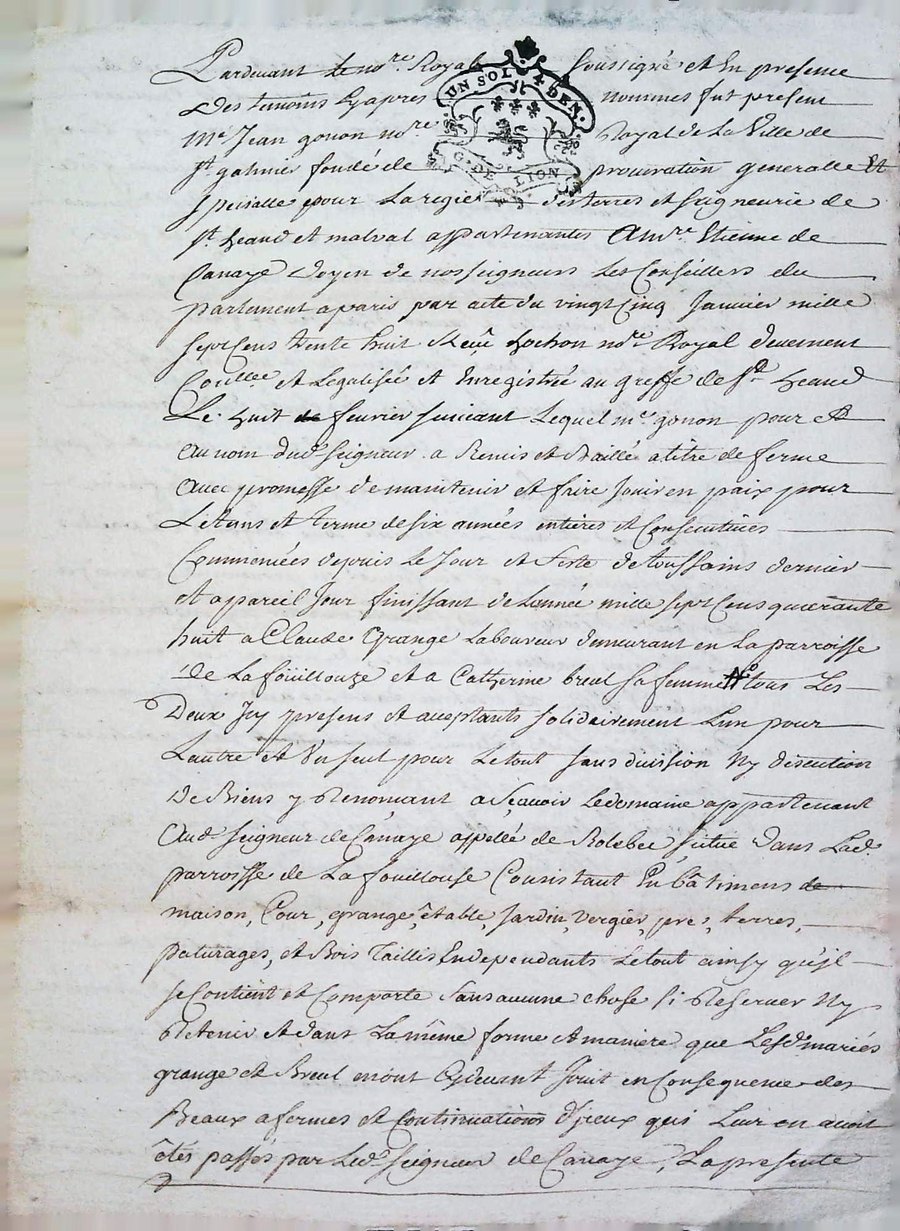 Pardevant le no.re Royal soussigné et En presence
des temoins Cyapres nommes fut present
M.e Jean gonon no.re Royal de La Ville de
s.t galmier fondé de procuration generalle Et
specialle pour La regie des terres et seigneurie de
s.t heand et malval appartenantes A m.re Etienne de
Canaye doyen de nosseigneurs Les Conseillers du
parlement a paris par acte du vingt Cinq Janvier mille
sept Cens trente huit Receu hochon no.re Royal deuement
Contollé et Legalisée et Enregistrée au greffe de s.t heand
Le huit de fevrier suivant Lequel m.e gonon pour et
au nom dud. seigneur a Remis et Baillé a titre de ferme
avec promesse de maintenir et faire Jouir en paix pour
Le tems et terme de six années entieres et Consecutives
Commencées depuis Le Jour et Feste de toussains dernier
et a pareil Jour finissant de Lannée mille sept Cens quarante
huit a Claude Grange Laboureur demeurant en La parroisse
de La foüillouze et a Catherine breul sa femme tous Les
Deux Icy presens et aceptants solidairement Lun pour
Lautre et Un seul pour Le tout sans division Ny discution
de Biens y Renonçant a sçavoir Le domaine appartenant
Aud. seigneur de Canaye appellé de Rolebec situé dans Lad.
parroisse de La foüillouse Consistant En bâtimens de
maison, Cour, grange, étable, Jardin, Vergier, prés, terres,
paturages, et Bois Taillis En dependants Le tout ainsy qu'jl
se Contient et Comporte sans aucune chose si Reserver Ny
Retenir et dans La même forme et maniere que Lesd. mariés
grange et Breul en ont Cydevant Jouit en Consequence des
Beaux a fermes et Continuations d'jceux qui Leur en avoit
êtés passés par Led. seigneur de Canaye, La presente
UN SOL 4 DEN.
G. DE LION